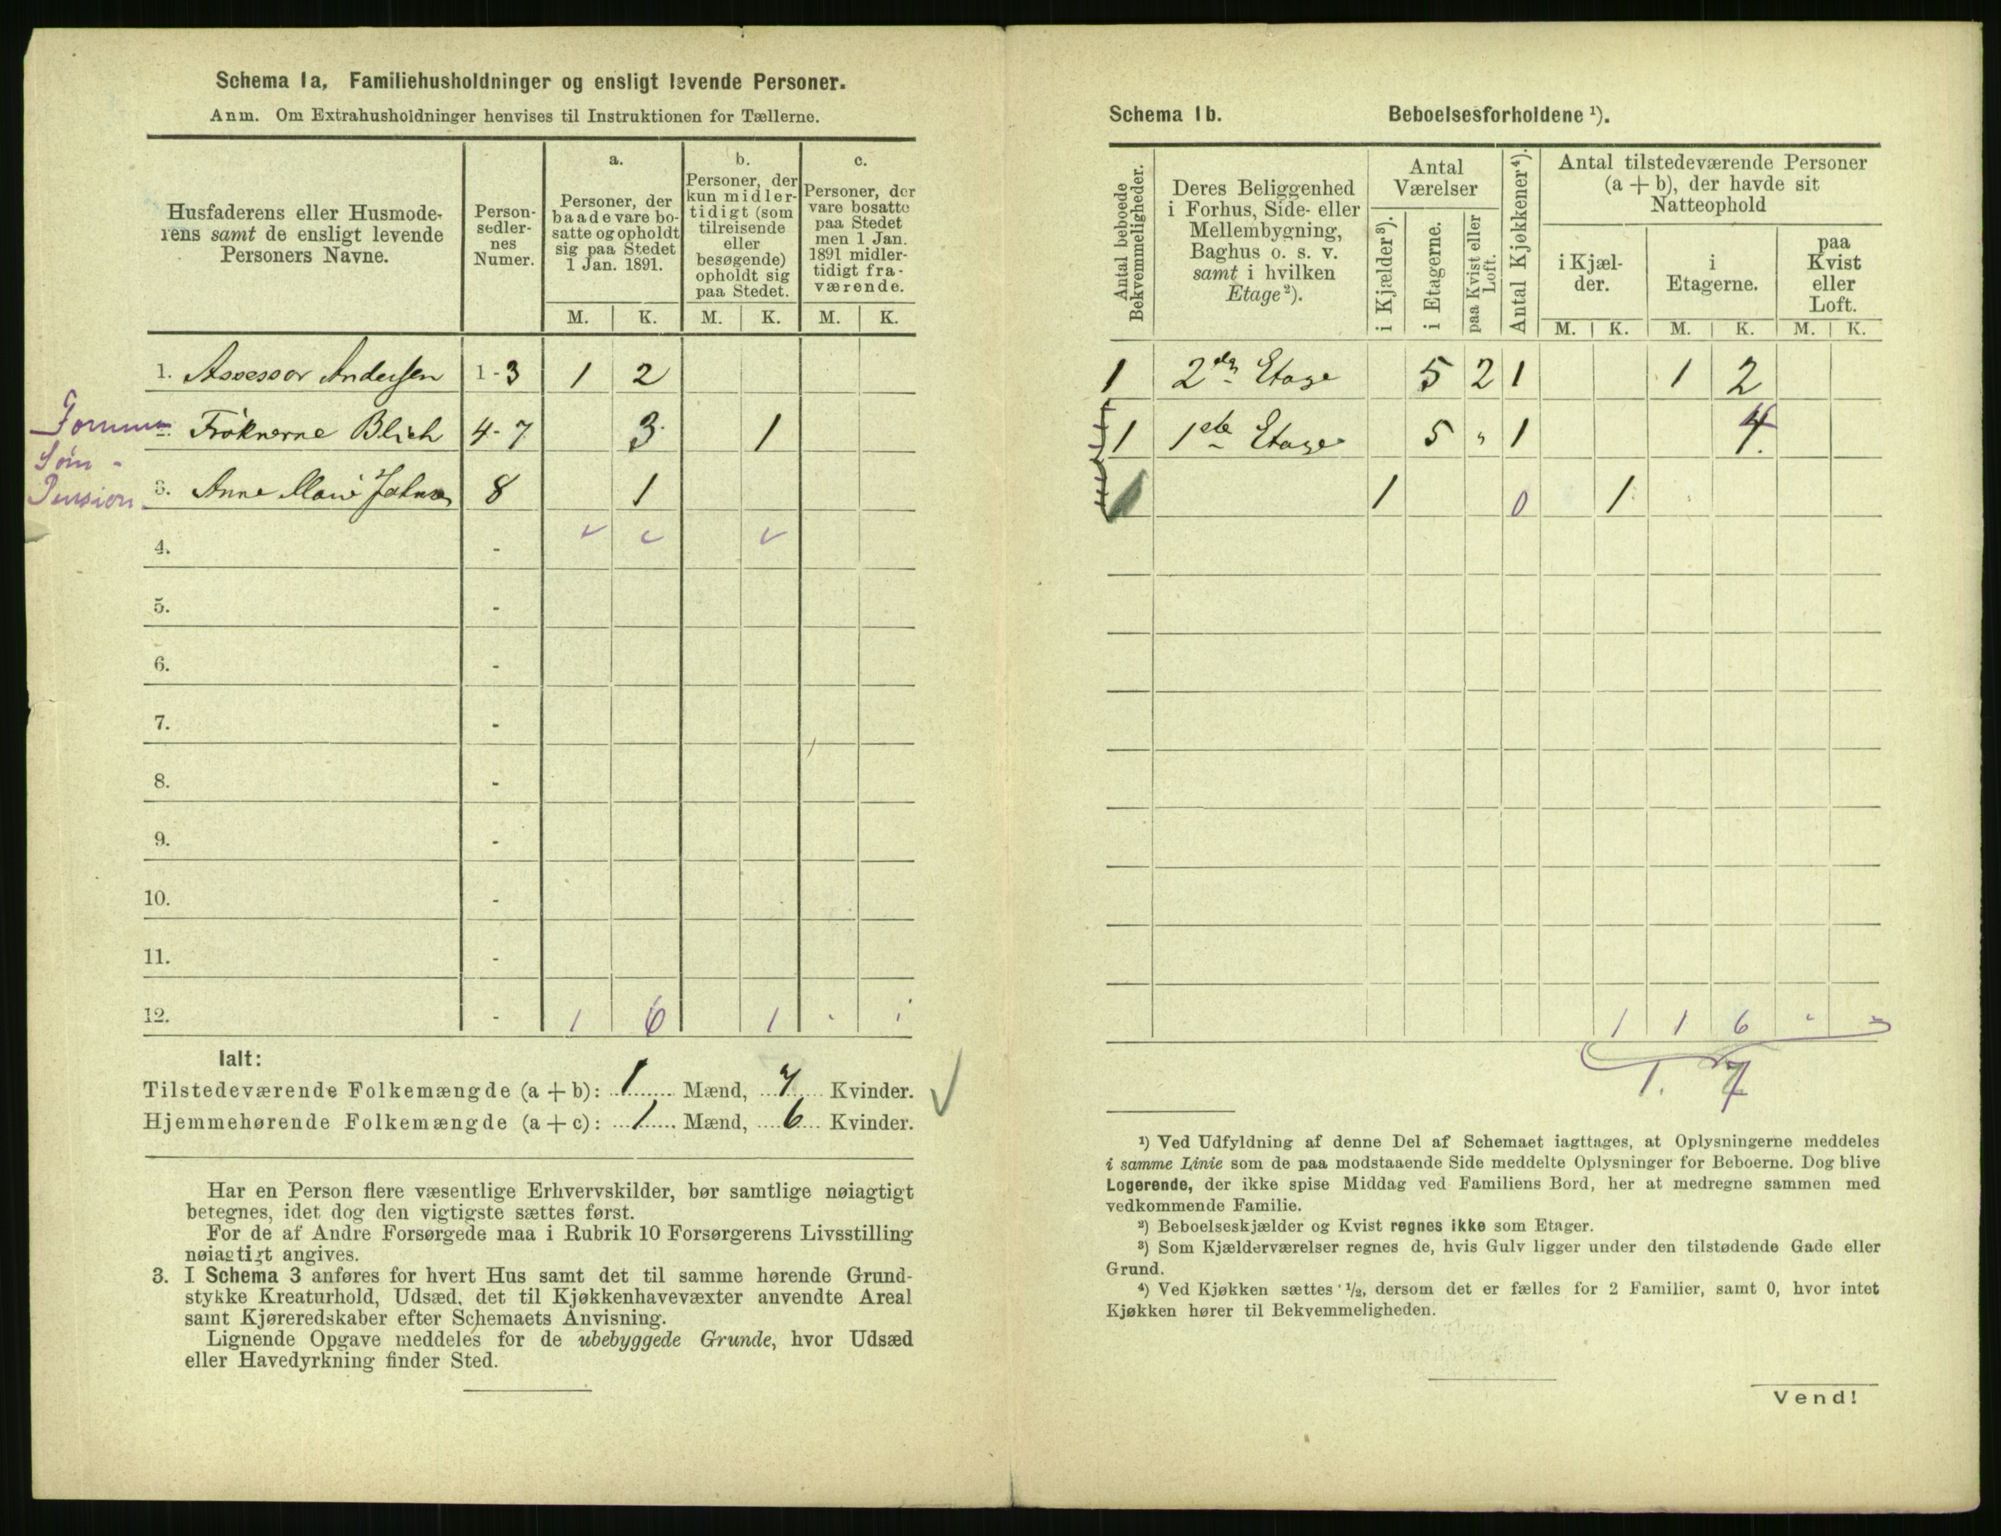 Schema 1a, Familiehusholdninger og ensligt levende Personer.
Anm. Om Extrahusholdninger henvises til Instruktionen for Tællerne.
Husfaderens eller Husmode-
rens samt de ensligt levende
Personers Navne.
Person-
sedler-
nes
Numer.
a.
Personer, der
baade vare bo-
satte og opholdt
sig paa Stedet
1 Jan. 1891.
b.
Personer, der
kun midler-
tidigt (som
tilreisende
eller
besøgende)
opholdt sig
paa Stedet.
c.
Personer, der
vare bosatte
paa Stedet
men 1 Jan.
1891 midler-
tidigt fra-
værende.
M. K. M. K. M. K.
1. Assessor Andersen 1-3 1 2
Frøknerne Blich 4-7 3 1
3. Anne Marie 8 1
Pension
4. -
5. -
6. -
7. -
8. -
9. -
10. -
11. -
12. - 1 6 1
Ialt:
Tilstedeværende Folkemængde (a + b): 1 Mænd, 7 Kvinder.
Hjemmehørende Folkemængde (a + c): 1 Mænd, 6 Kvinder.
Har en Person flere væsentlige Erhvervskilder, bør samtlige nøiagtigt
betegnes, idet dog den vigtigste sættes først.
For de af Andre Forsørgede maa i Rubrik 10 Forsørgerens Livsstilling
nøiagtigt angives.
3. I Schema 3 anføres for hvert Hus samt det til samme hørende Grund-
stykke Kreaturhold, Udsæd, det til Kjøkkenhavevæxter anvendte Areal
samt Kjøreredskaber efter Schemaets Anvisning.
Lignende Opgave meddeles for de ubebyggede Grunde, hvor Udsæd
eller Havedyrkning finder Sted.
Schema 1b. Beboelsesforholdene ¹).
Antal beboede
Bekvemmeligheder.
Deres Beliggenhed
i Forhus, Side- eller
Mellembygning,
Baghus o. s. v.
samt i hvilken
Etage ²).
Antal
Værelser
i Kjælder ³).
i Etagerne.
paa Kvist eller
Loft.
Antal Kjøkkener ⁴).
Antal tilstedeværende Personer
(a + b), der havde sit
Natteophold
i Kjæl-
der.
i
Etagerne.
paa
Kvist
eller
Loft.
M. K. M. K. M. K.
1 2den Etage 5 2 1 1 2
1 1ste Etage 5 " 1 4
1 0 1
1 1 6
1. 7
¹) Ved Udfyldning af denne Del af Schemaet iagttages, at Oplysningerne meddeles
i samme Linie som de paa modstaaende Side meddelte Oplysninger for Beboerne. Dog blive
Logerende, der ikke spise Middag ved Familiens Bord, her at medregne sammen med
vedkommende Familie.
²) Beboelseskjælder og Kvist regnes ikke som Etager.
³) Som Kjælderværelser regnes de, hvis Gulv ligger under den tilstødende Gade eller
Grund.
⁴) Ved Kjøkken sættes ½, dersom det er fælles for 2 Familier, samt 0, hvor intet
Kjøkken hører til Bekvemmeligheden.
Vend!